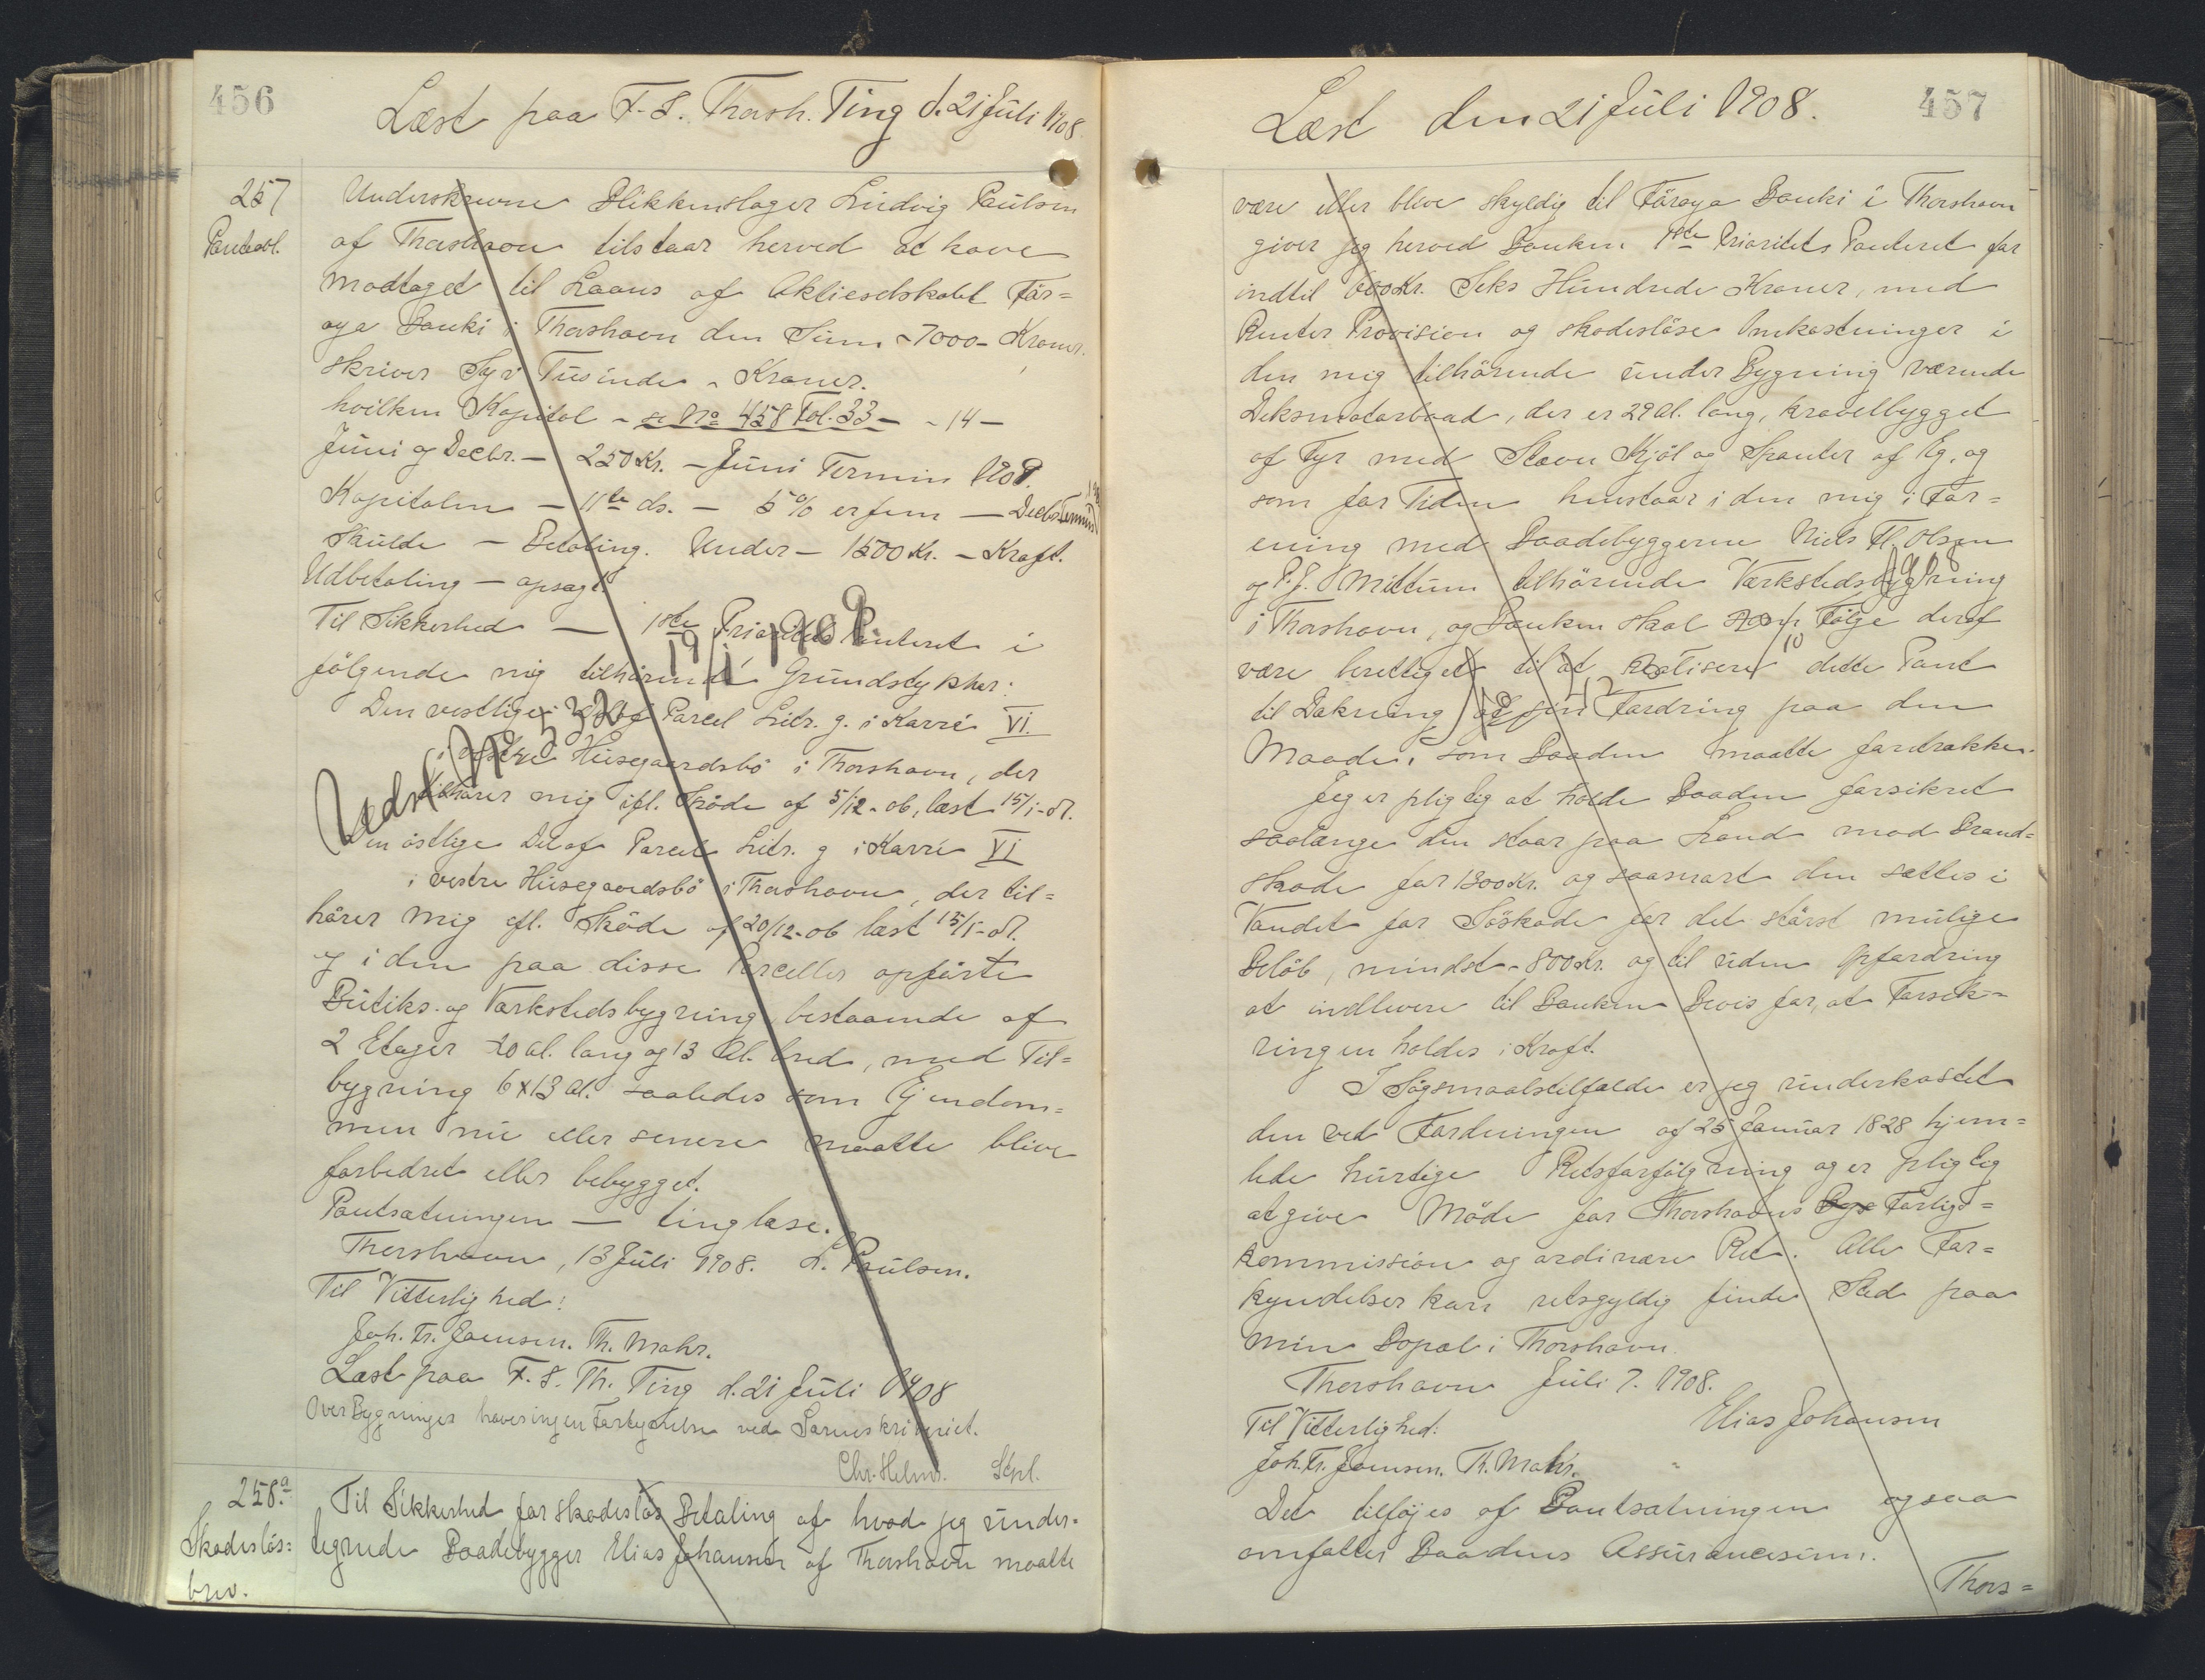 456
Læst paa F. S. Thorsh. Ting d. 21 Juli 1908
257
Panteobl.
Underskrevne Blikkenslager Ludvig Paulsen
af Thorshavn tilstaar herved at have
modtaget til Laans af Aktieselskabet För=
oya Banki i Thorshavn den Sum - 7000 - Kroner
skriver Syv Tusinde - Kroner.
hvilken Kapital - se No 458 Fol. 33 - - 14 -
Juni og Decbr. - 250 Kr. - Juni Termin 1909.
Kapitalen - 11te ds. - 5% er fem - Decbr Termin
Skulde - Betaling. Under - 1500 Kr. - Kraft.
Udbetaling - opsagt.
Til Sikkerhed - 1ste Prioritets Panteret i
følgende mig tilhørende Grundstykker:
Den vestlige Del af Parcel Litr. g. i Karré VI.
i vestre Husegaardsbö i Thorshavn, der
tilhører mig ifl. Sköde af 5/12-06, læst 15/1-07.
Den östlige Del af Parcel Litr. g i Karré VI
i vestre Husegaardsbö i Thorshavn, der til=
hörer mig ifl. Sköde af 20/12-06 læst 15/1-07.
og i den paa disse Parceller opförte
Butiks- og Værkstedsbygning bestaaende af
2 Etager 20 al. lang og 13 Al. bred, med Til=
bygning 6x13 al. saaledes som Ejendom=
men nu eller senere maatte blive
forbedret eller bebygget.
Pantsætningen - tinglæse.
Thorshavn, 13 Juli 1908. L. Paulsen.
Til Vitterlighed:
Joh. Fr. Joensen. Th. Mohr.
Læst paa F. S. Th. Ting d. 21 Juli 1908
Over Bygninger haves ingen Fortegnelse ved Sorenskriveriet.
Chr. Helms. Scpl.
Udsl No 532
19/1 1909
258.a
Skadeslös=
brev.
Til Sikkerhed for skadeslös Betaling af hvad jeg under=
tegnede Baadebygger Elias Johansen af Thorshavn maatte
457
Læst den 21 Juli 1908.
være eller blive skyldig til Föroya Banki i Thorshavn
giver jeg herved Banken 1ste Prioritets Panteret for
indtil 600 Kr. Seks Hundrede Kroner, med
Renter Provision og skadeslöse Omkostninger i
den mig tilhörende under Bygning værende
Deksmotorbaad, der er 29 al. lang, kravelbygget
af Fyr med Stævn Kjöl og Spanter af Eg, og
som for Tiden henstaar i den mig i For=
ening med Baadebyggerne Niels Fl. Olsen
og P. J. Mittum tilhörende Værkstedsbygning
i Thorshavn, og Banken skal som Følge deraf
være berettiget til at realisere dette Pant
til Dækning af sin Fordring paa den
Maade, som Baaden maatte foretrække.
Jeg er pligtig at holde Baaden forsikret
saalænge den staar paa Land mod Brand=
skade for 1300 Kr. og saasnart den sættes i
Vandet for Söskade for det störst mulige
Belöb, mindst - 800 Kr. og til uden Opfordring
at indlevere til Banken Bevis for, at Forsik=
ringen holdes i Kraft.
I Sögsmaalstilfælde er jeg underkastet
den ved Forordningen af 25 Januar 1828 hjem=
lede hurtige Retsforfölgning og er pligtig
at give Möde for Thorshavns Bys Forligs=
kommission og ordinære Ret. Alle For=
kyndelser kan retsgyldig finde Sted paa
min Bopæl i Thorshavn.
Thorshavn Juli 7. 1908.
Elias Johansen
Til Vitterlighed:
Joh. Fr. Joensen. Th. Mohr.
Det tilføjes af Pantsætningen ogsaa
omfatter Baadens Assurancesum.
Thors=